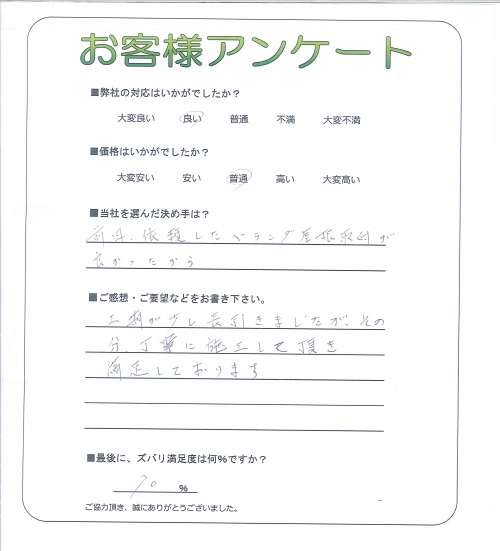 お客様アンケート
■弊社の対応はいかがでしたか？
大変良い 良い 普通 不満 大変不満
■価格はいかがでしたか？
大変安い 安い 普通 高い 大変高い
■当社を選んだ決め手は？
前回、依頼したベランダ屋根取付が
良かったから
■ご感想・ご要望などをお書き下さい。
工期が少し長引きましたが、その
分、丁寧に施工して頂き
満足しております
■最後に、ズバリ満足度は何%ですか？
90 %
ご協力頂き、誠にありがとうございました。